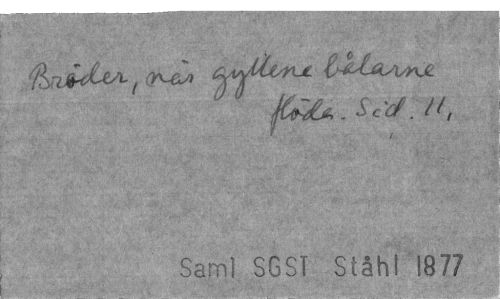 Bröder, när gyllene bålarne
flöda. Sid. 11.
Saml SGST Ståhl 1877